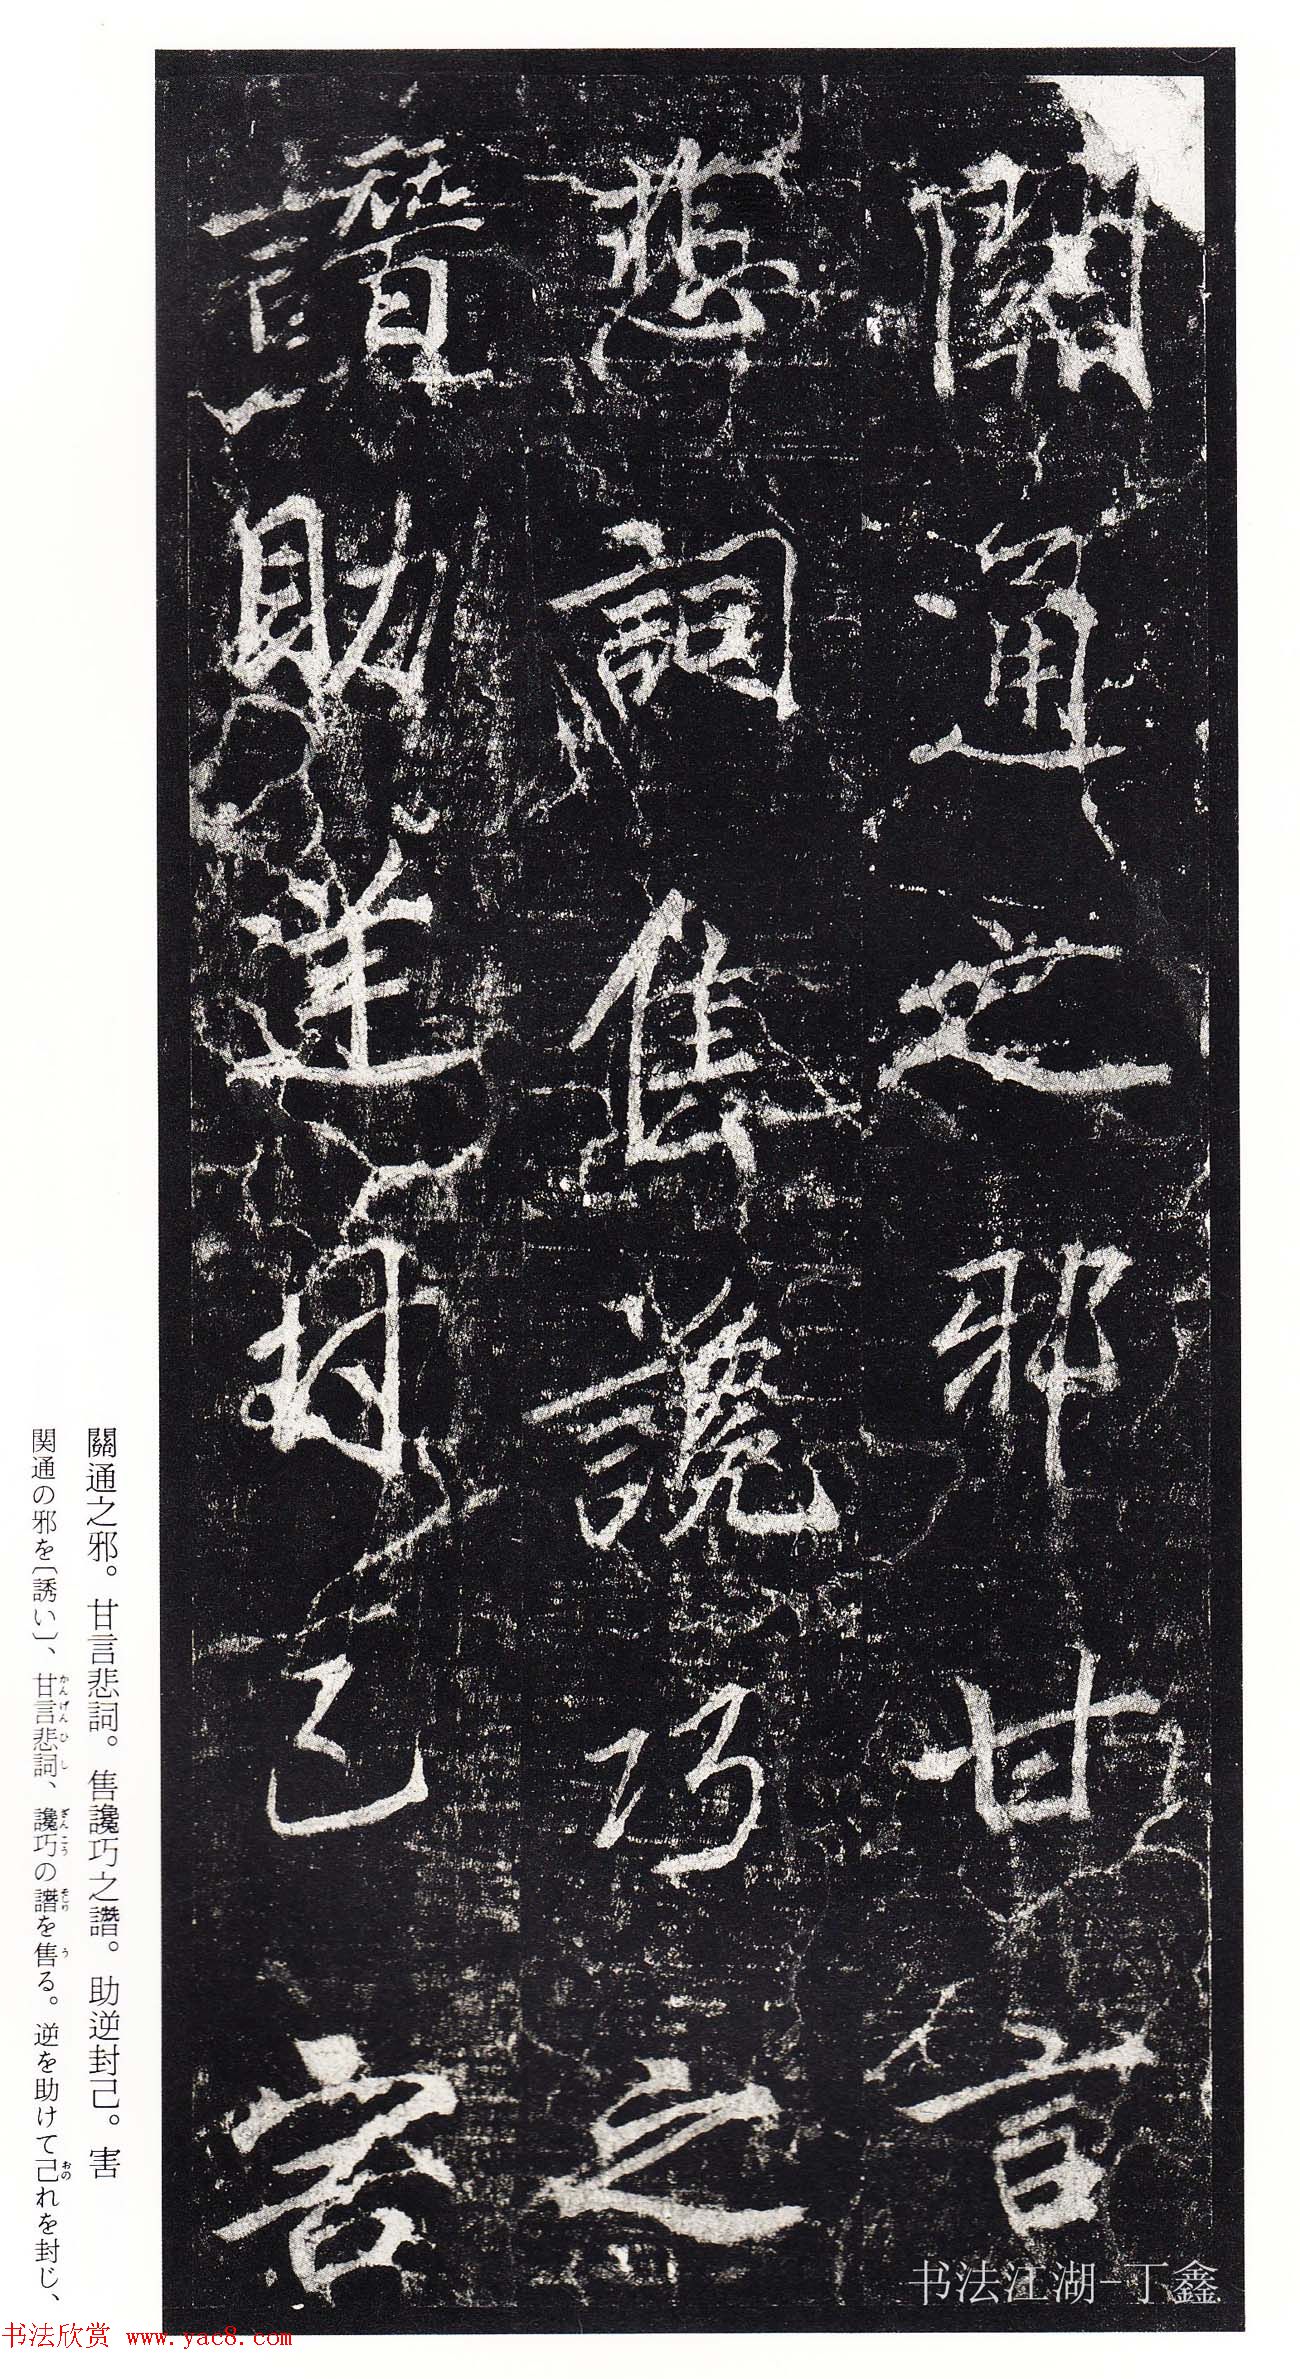 關通之邪甘言
悲詞售讒巧之
譖助逆封己害
關通之邪。甘言悲詞。售讒巧之譖。助逆封己。害
関通の邪を〔誘い〕、甘言悲詞、讒巧の譖を售る。逆を助けて己れを封じ、
かんげんひし ざんこう そしり う おの
书法江湖-丁鑫
书法欣赏 www.yac8.com